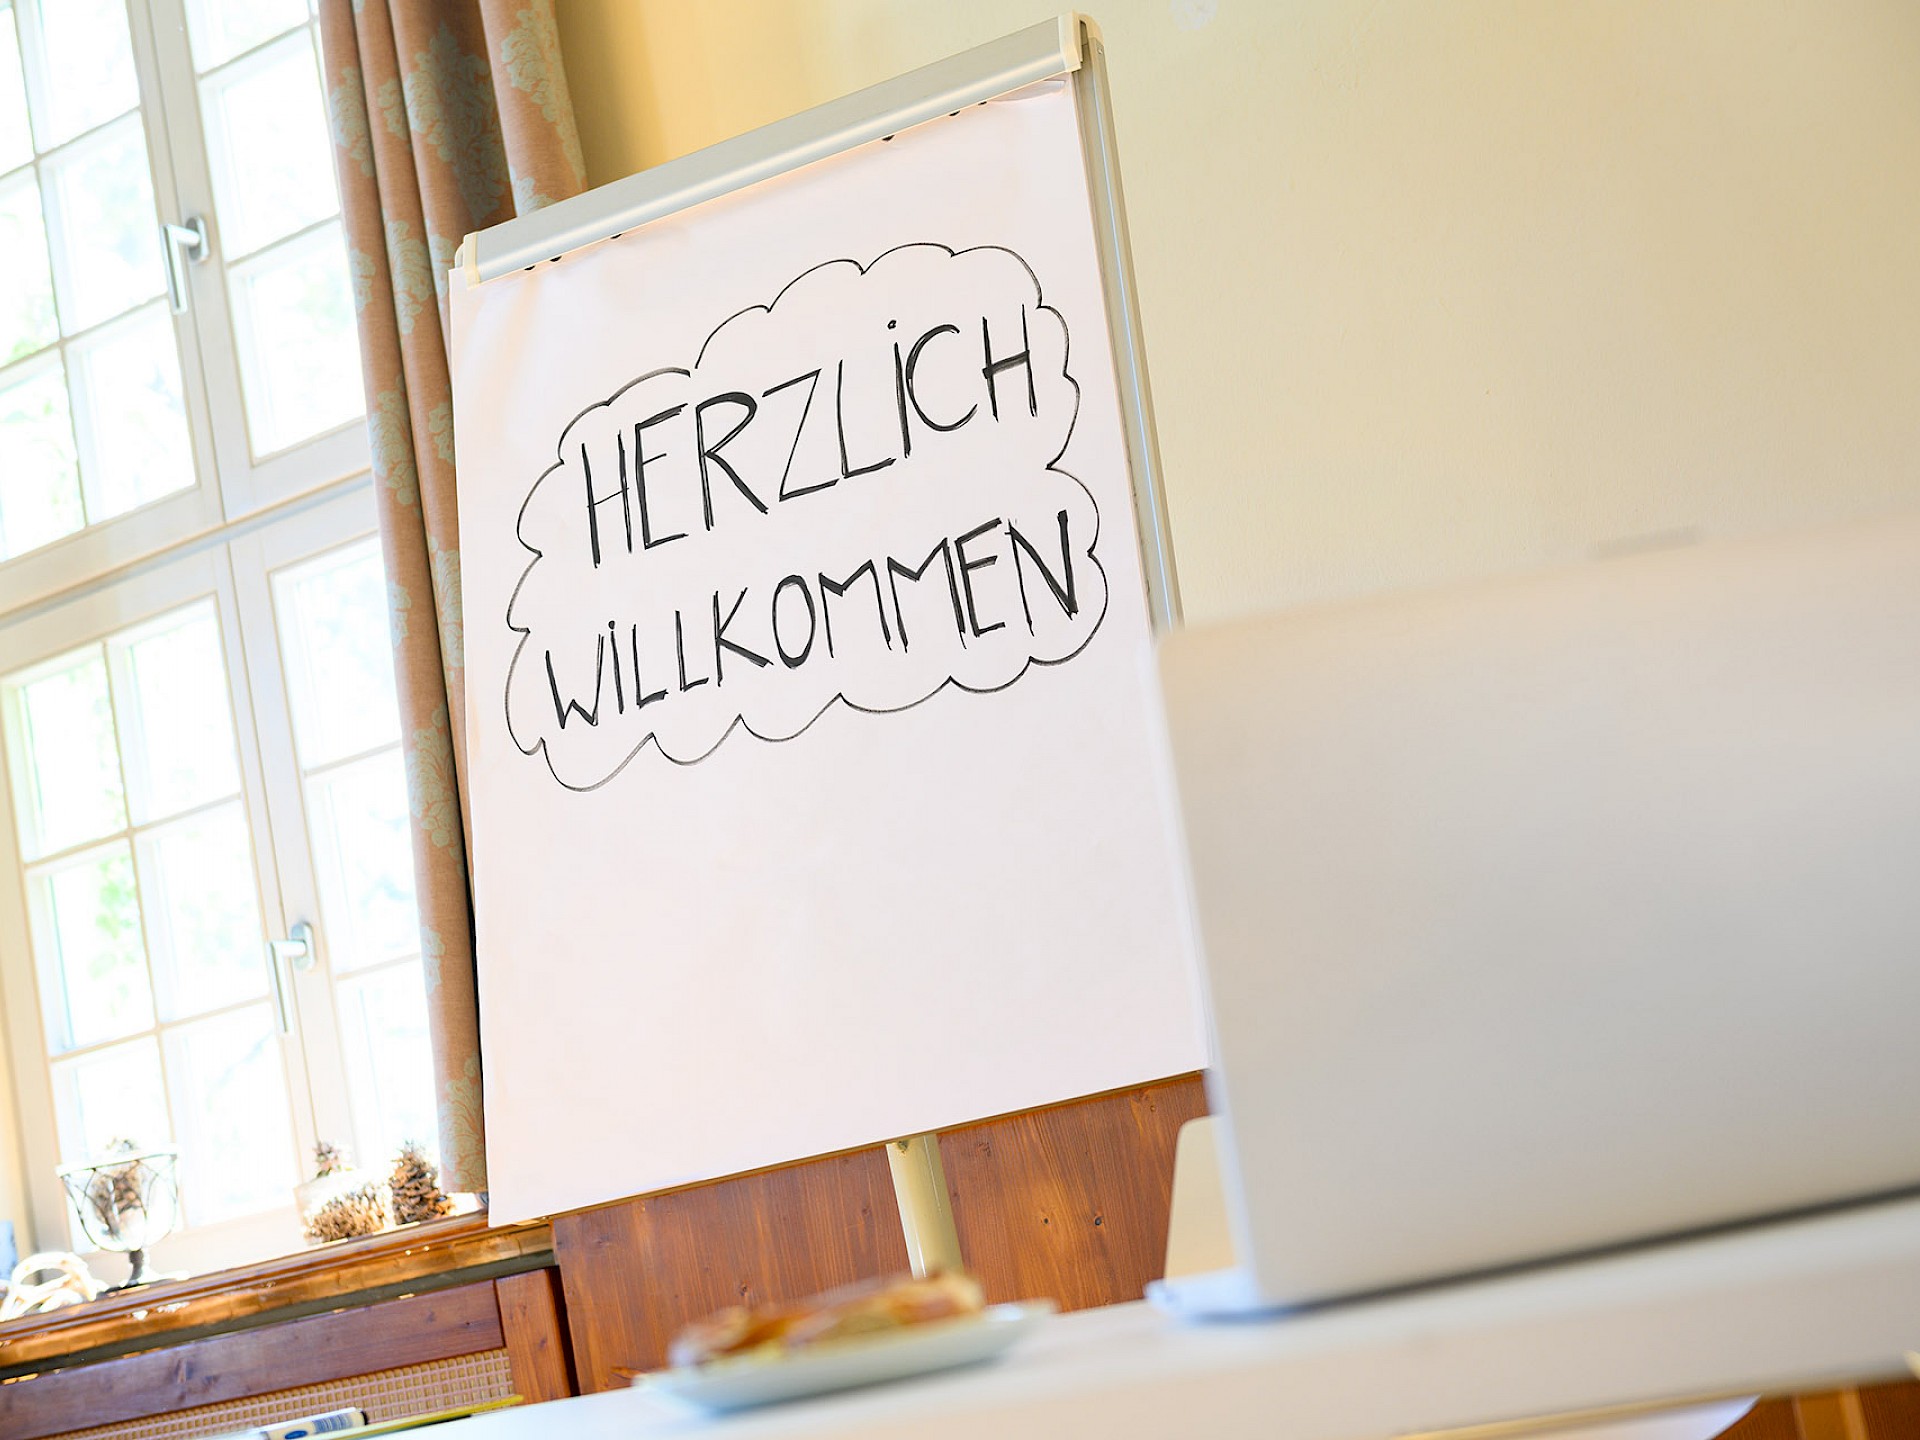 HERZLiCH
WiLLKOMMEN